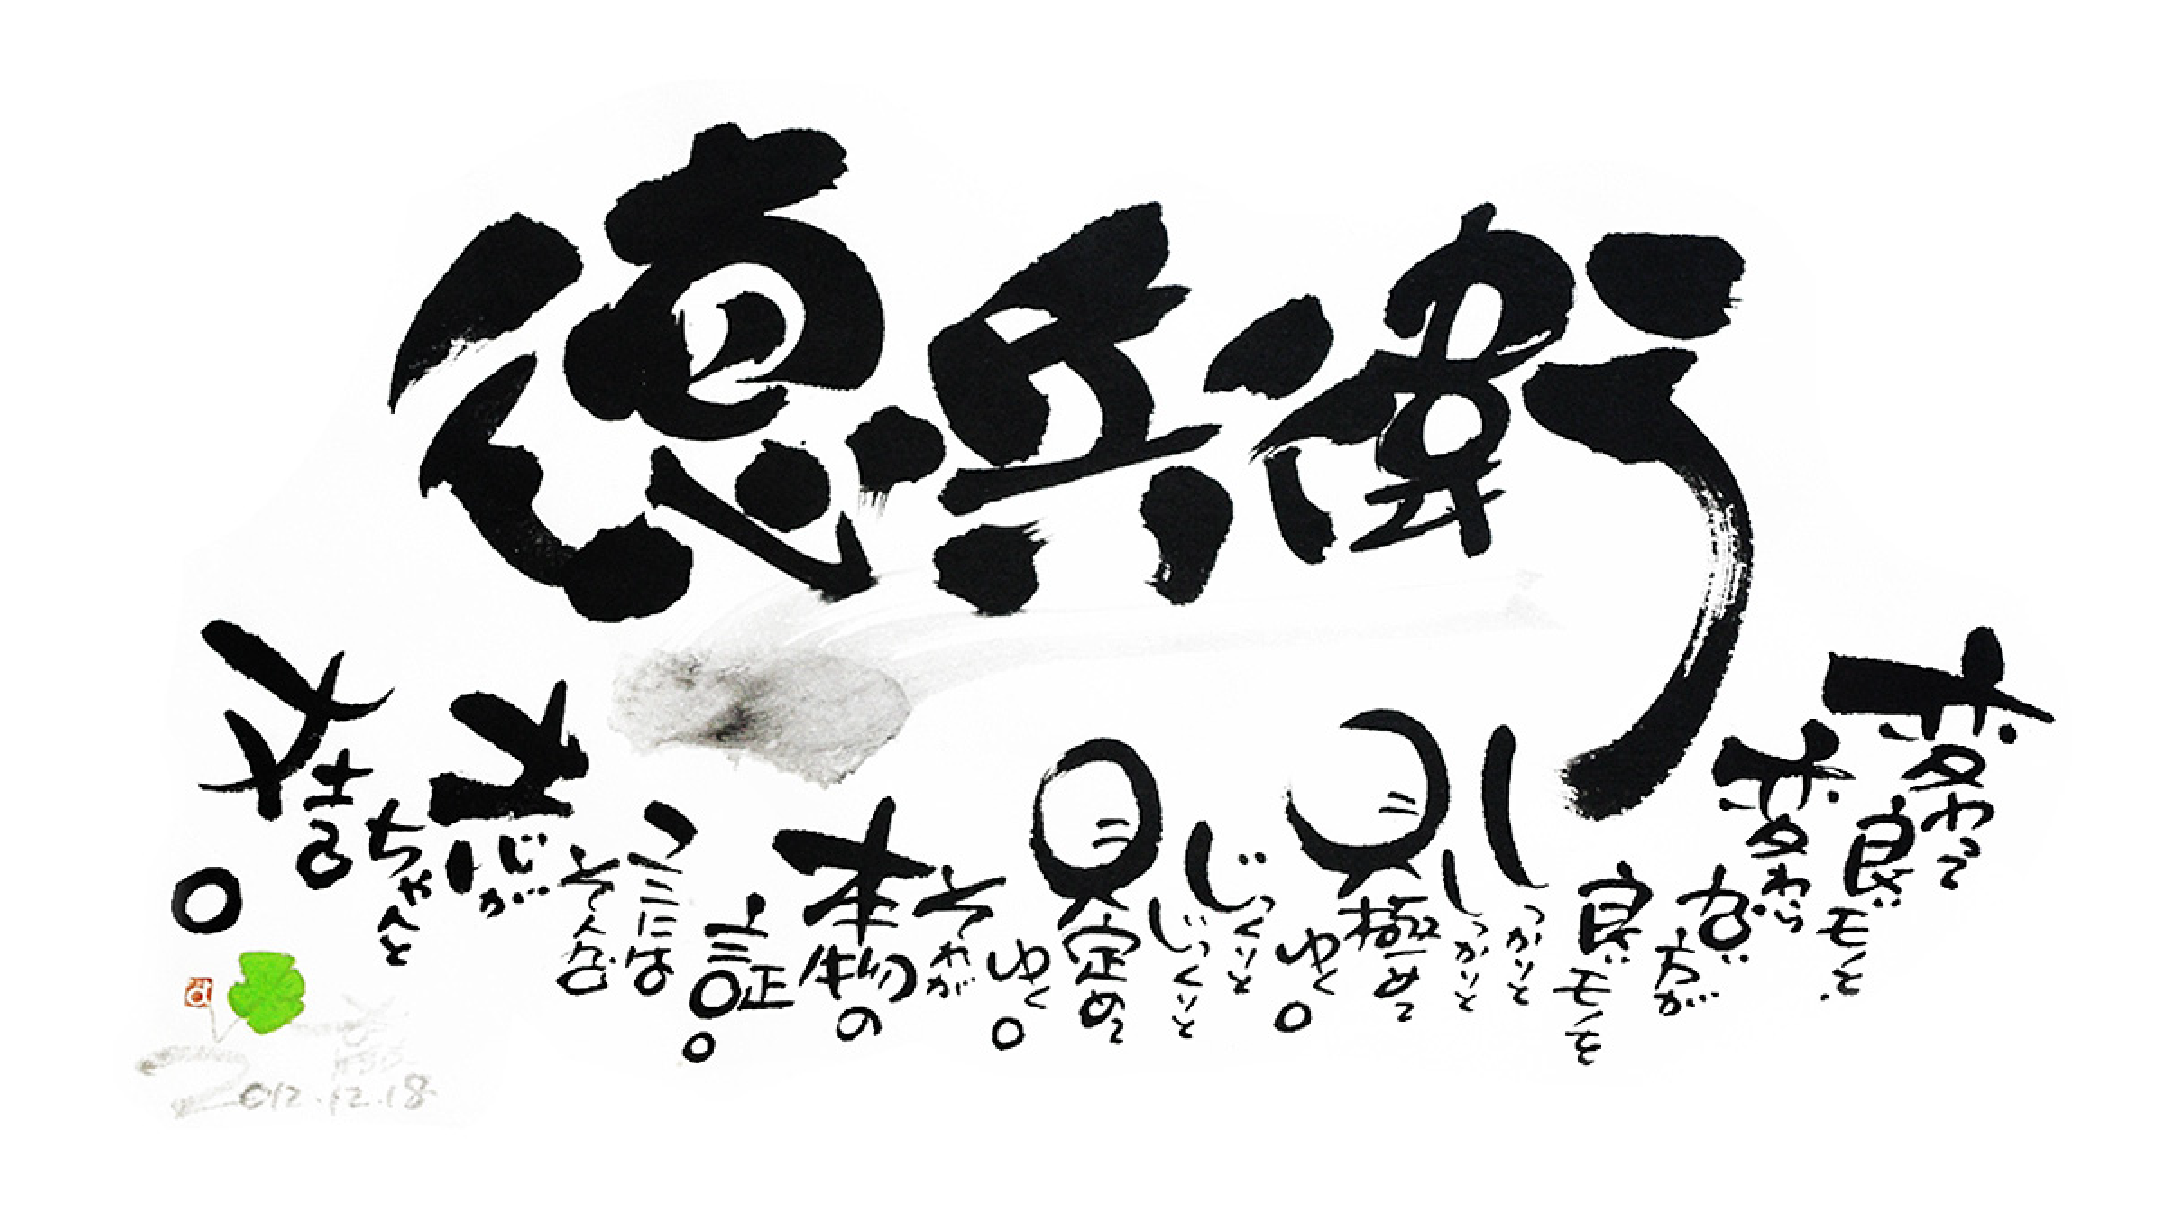 徳兵衛
変わって
良いモノと、
変わら
ない
方が
良いモノを
しっかりと
しっかりと
見極めて
ゆく。
じっくりと
じっくりと
見定めて
ゆく。
それが
本物の
証。
ここには
そんな
ちゃんと
在る
。
2012.12.18